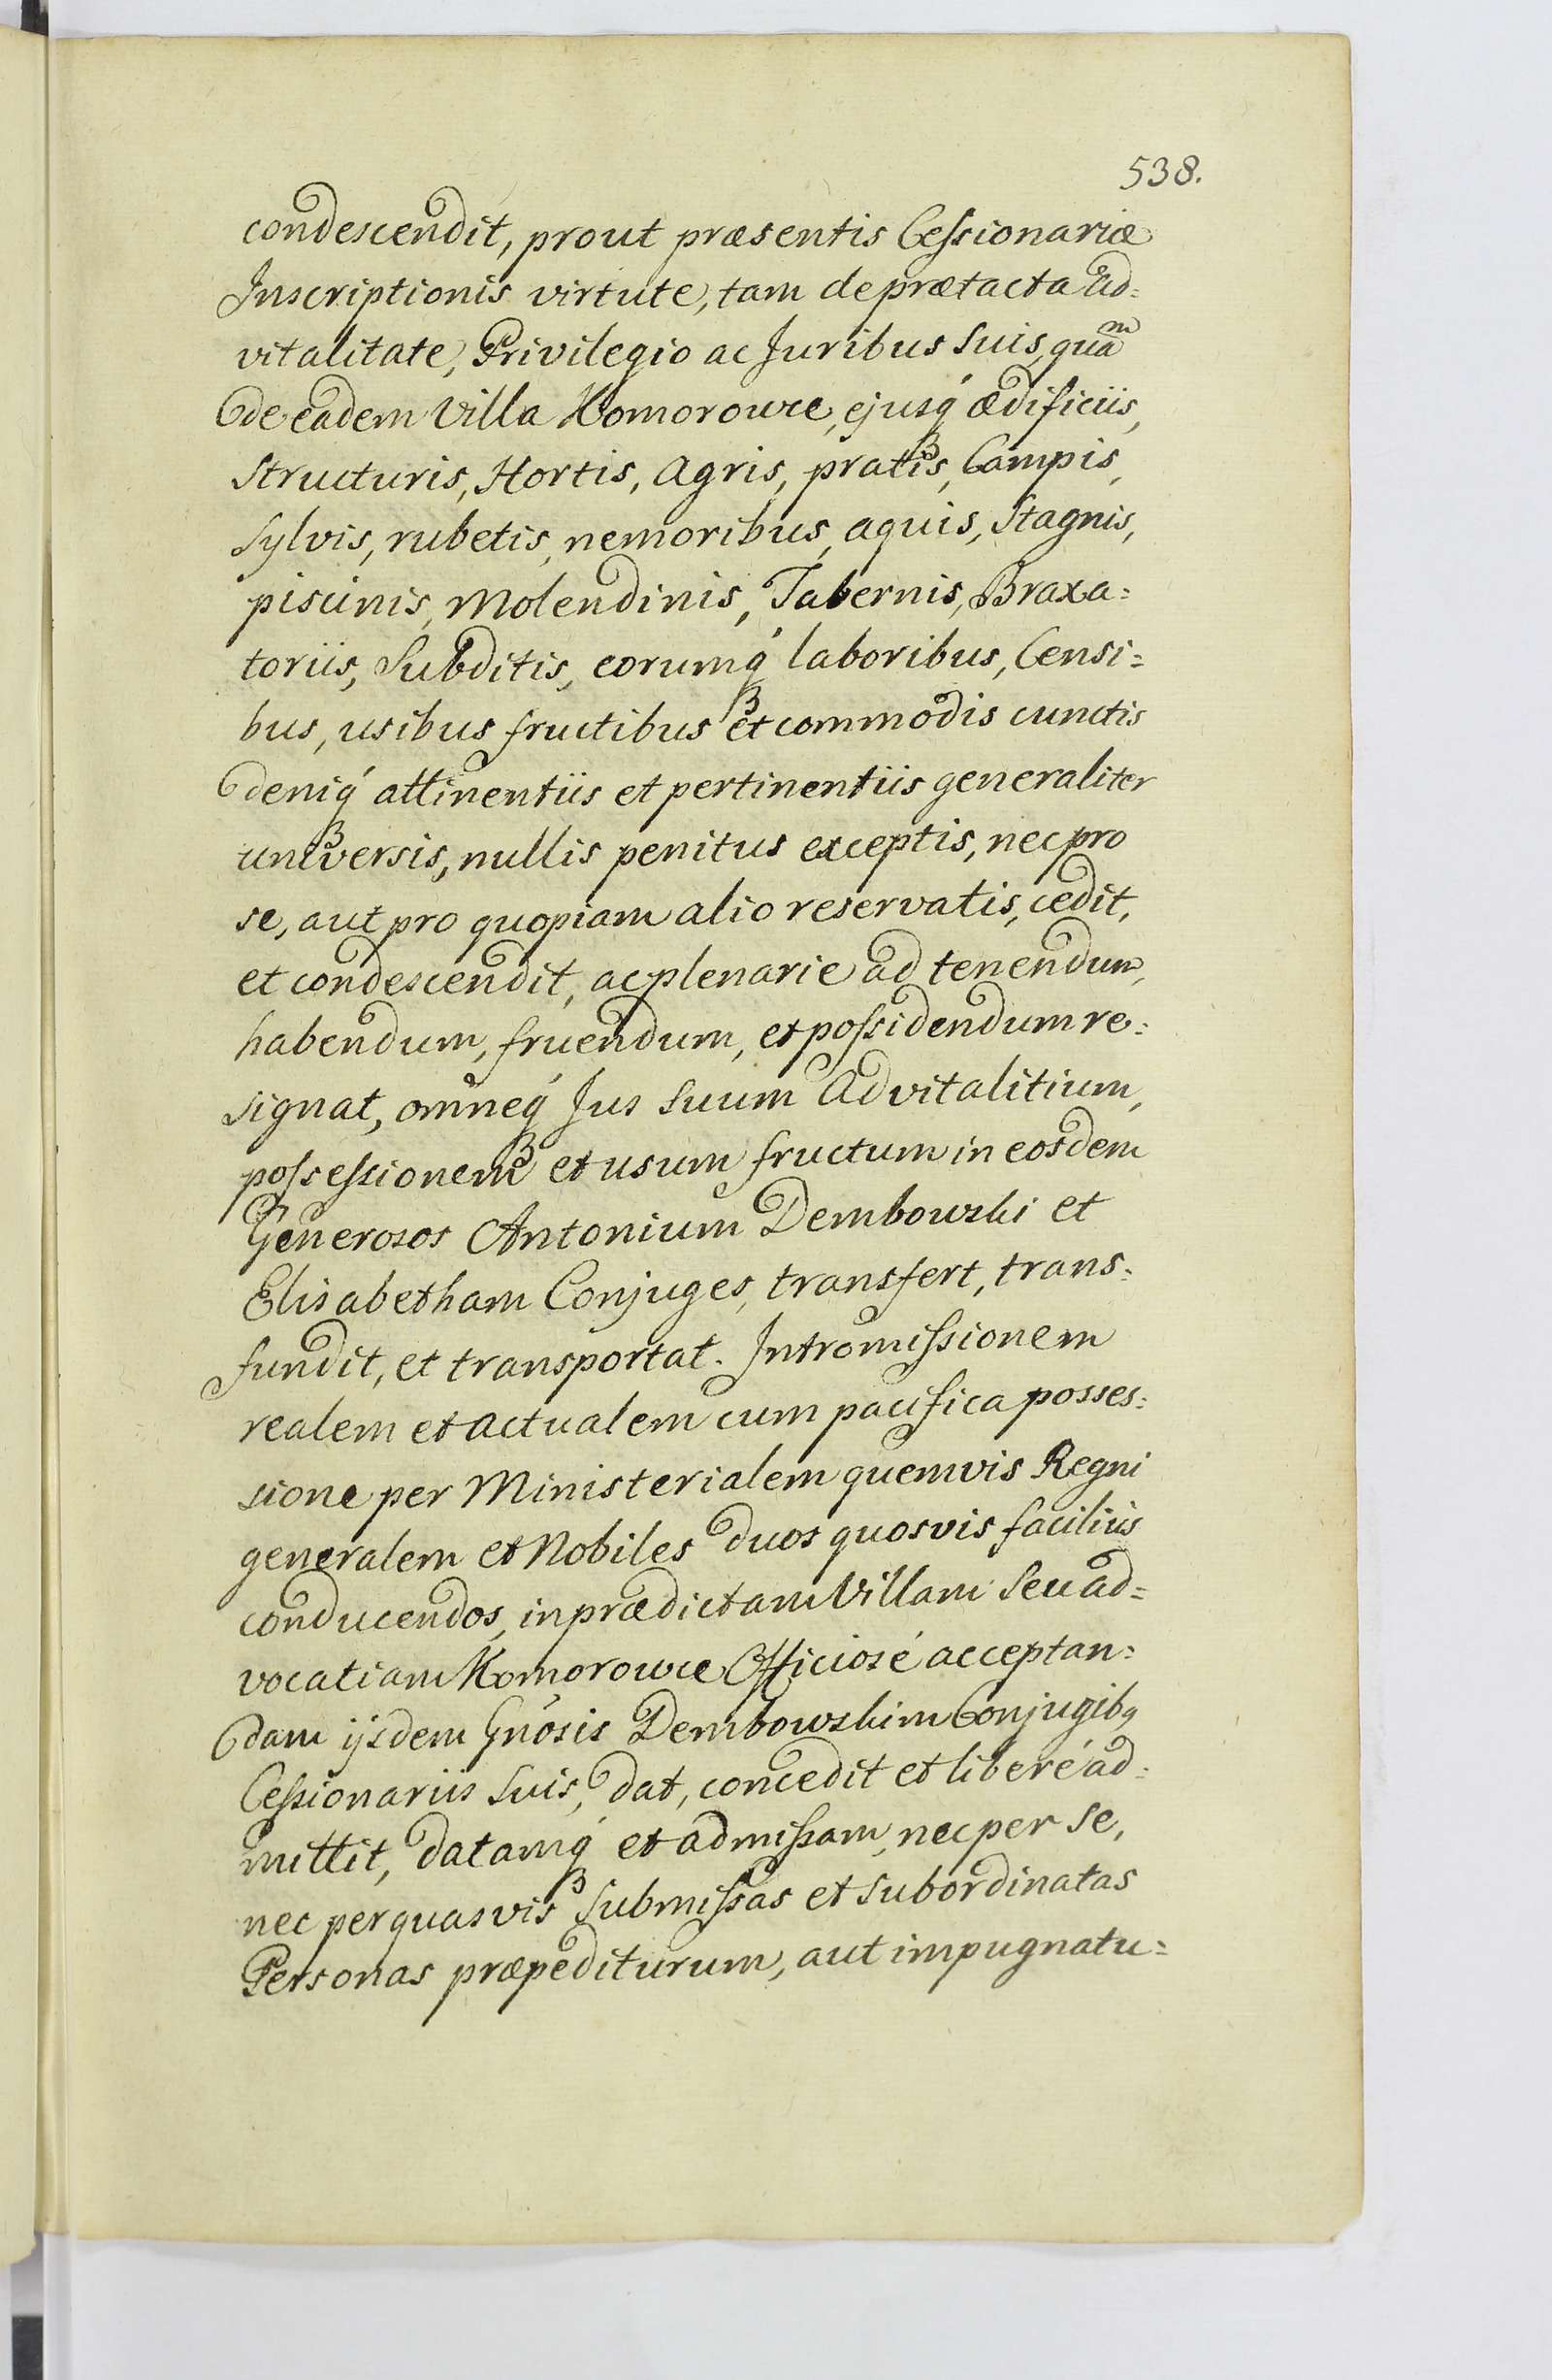 538.
condescendit, prout præsentis Cessionariæ
Inscriptionis virtute, tam de prætacta ad=
vitalitate, Privilegio ac Juribus suis, quam
de eadem Villa Komorowce, ejusq́ ædificiis,
structuris, Hortis, Agris, pratis, Campis,
sylvis, rubetis, nemoribus, aquis, stagnis,
piscinis, Molendinis, Tabernis, Braxa=
toriis, Subditis, eorumq́ laboribus, Censi=
bus, usibus fructibus et commodis cunctis
deniq́ attinentiis et pertinentiis generaliter
universis, nullis penitus exceptis, nec pro
se, aut pro quopiam alio reservatis, cedit,
et condescendit, ac plenarie ad tenendum,
habendum, fruendum, et possidendum re=
signat, omneq́ Jus suum Advitalitium,
possessionem et usum fructum in eosdem
Generosos Antonium Dembowski et
Elisabetham Conjuges, transfert, trans=
fundit, et transportat. Intromissionem
realem et actualem cum pacifica posses=
sione per Ministerialem quemvis Regni
generalem et Nobiles duos quosvis facilius
conducendos, in prædictam Villam seu ad=
vocatiam Komorowce Officiosé acceptan=
dam ijsdem Gnósis Dembowskim Conjugibq
Cessionariis suis, dat, concedit et liberé ad=
mittit, datamq́ et admissam, nec per se,
nec per quasvis submissas et subordinatas
Personas præpediturum, aut impugnatu=